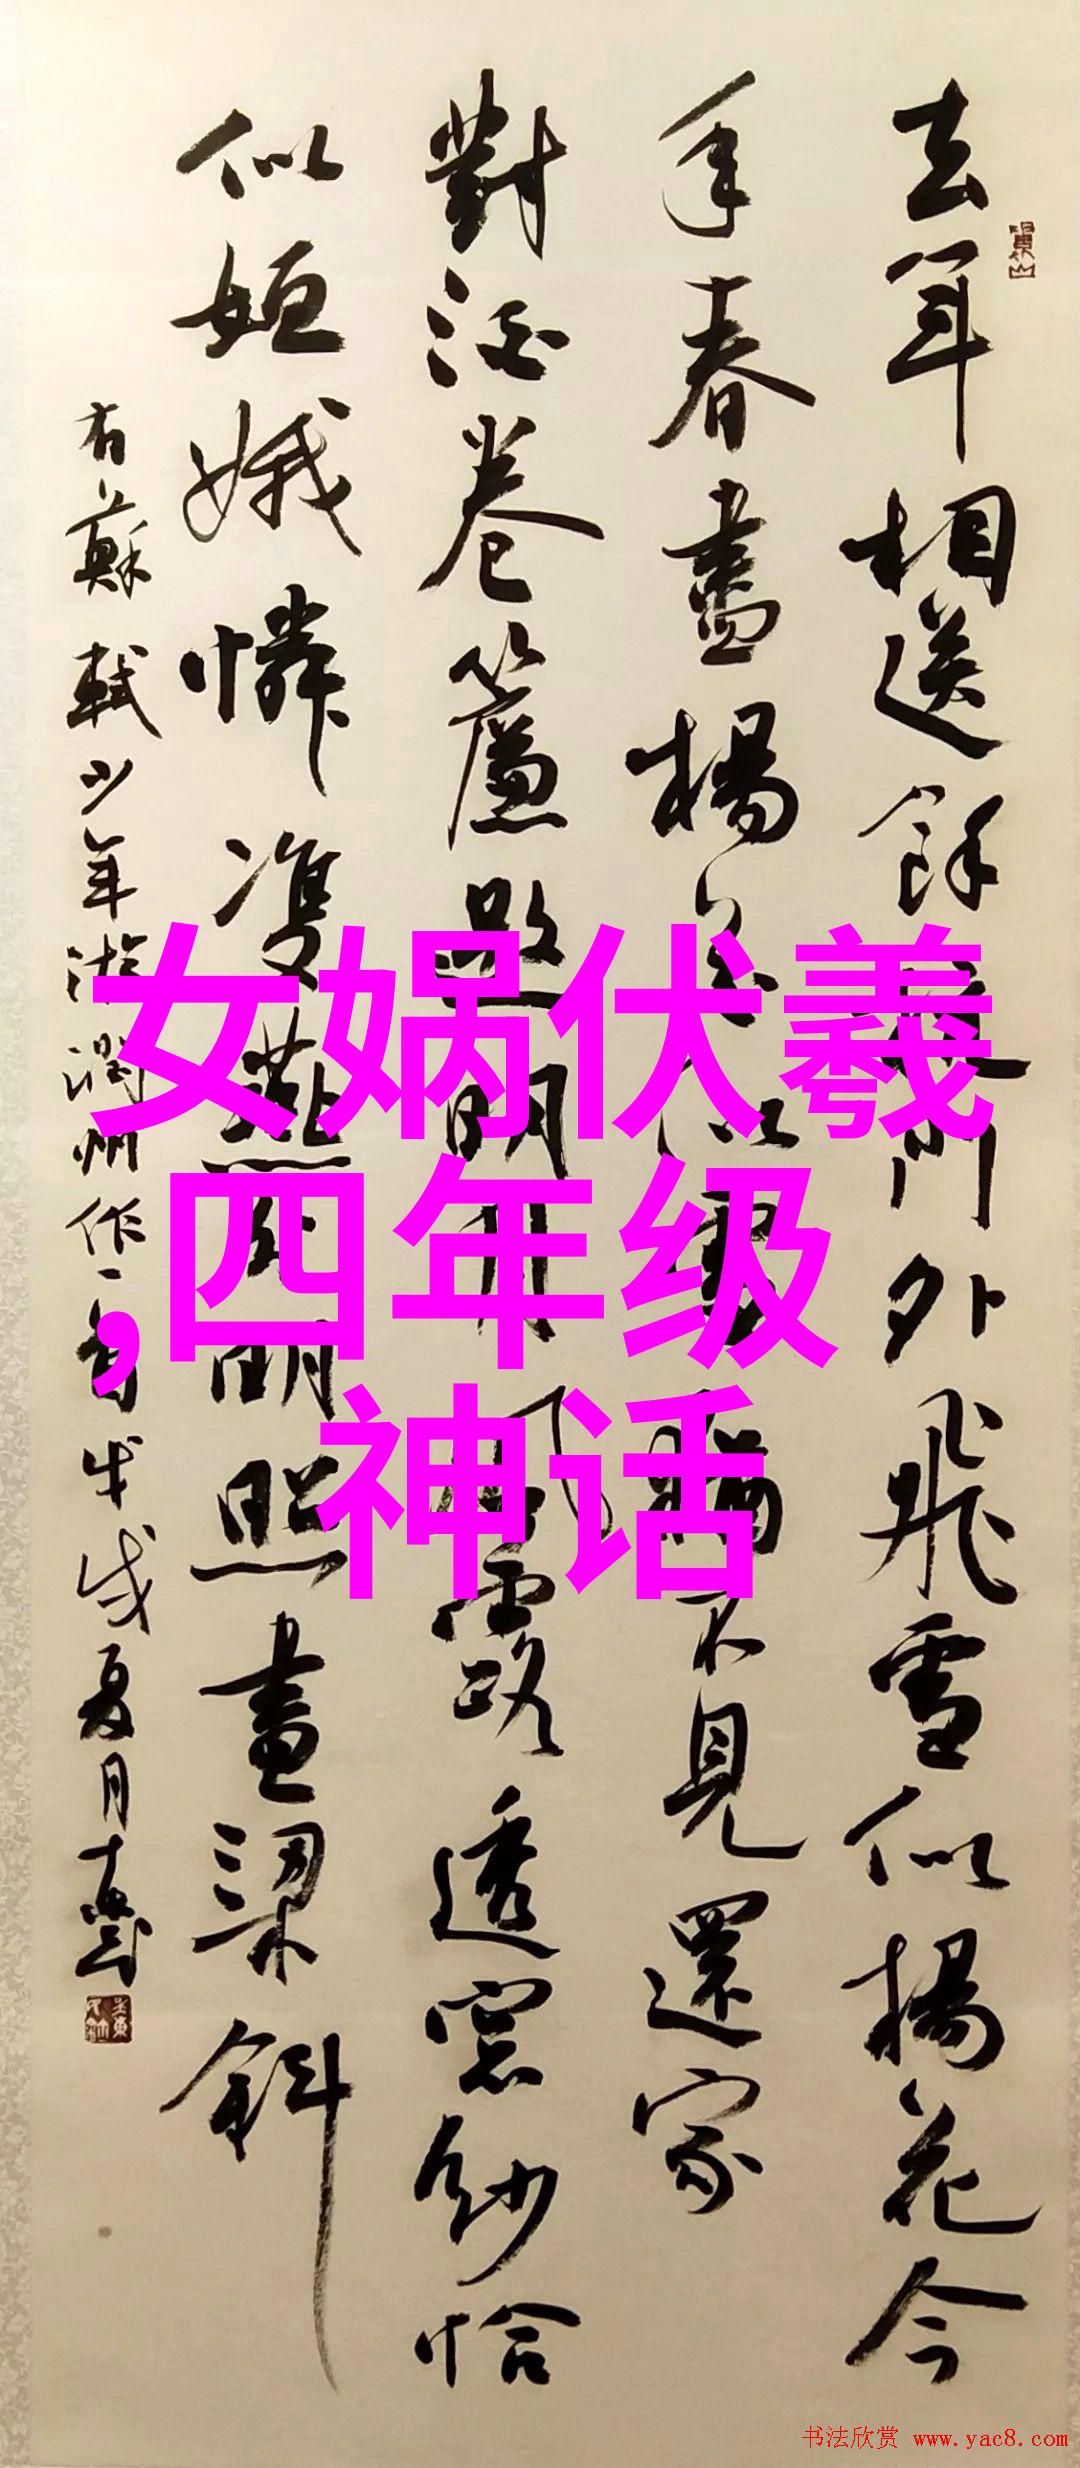 去年相送餘杭門外飛雪似楊花今
年春盡楊花似雪猶不見還家
對酒卷簾邀明月風露透窓紗恰
似姮娥憐雙燕分明照畫梁斜
右蘇軾少年游潤州作一首戊戌夏月
女娲伏羲
,四年级
神话
书法欣赏 www.yac8.com